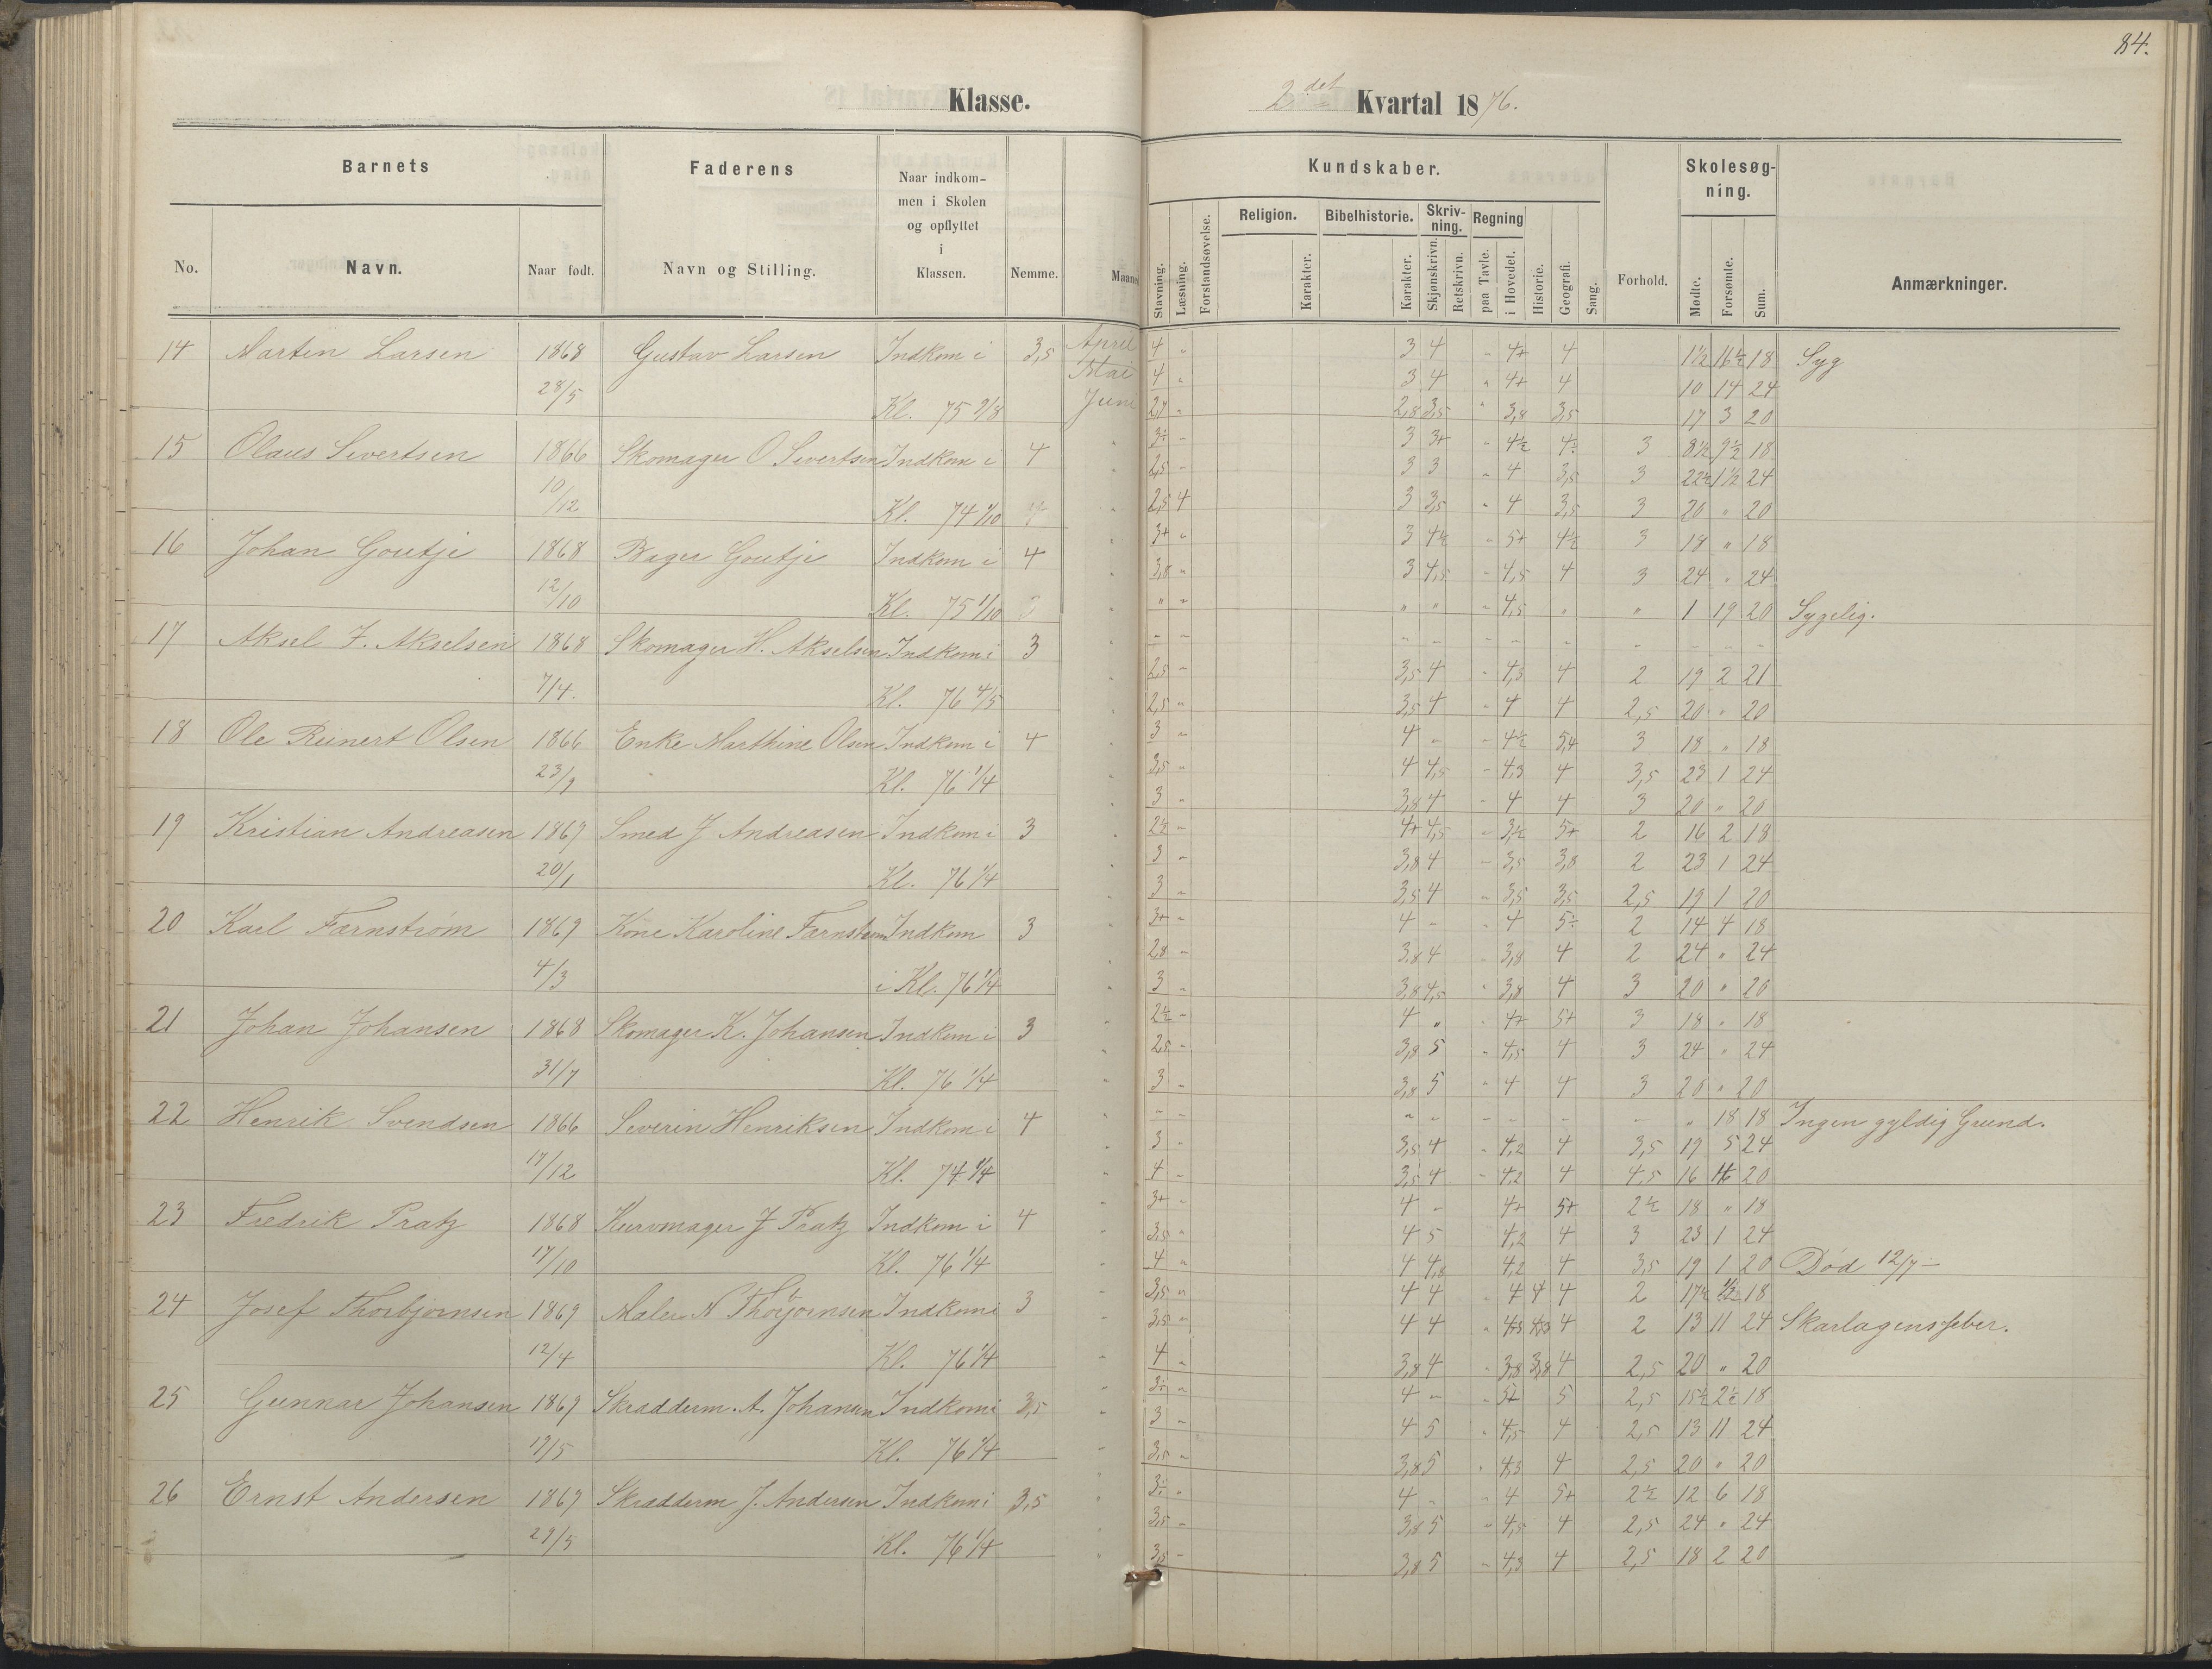 84.
Klasse.
2det Kvartal 1876.
Barnets
Faderens
Naar indkom-
men i Skolen
og opflyttet
i
Klassen.
No.
Navn.
Naar født.
Navn og Stilling.
Nemme.
Kundskaber.
Skolesøg-
ning.
Stavning.
Læsning.
Forstandsøvelse.
Religion.
Karakter.
Bibelhistorie.
Karakter.
Skriv-
ning.
Skjønskrivn.
Retskrivn.
Regning
paa Tavle.
i Hovedet.
Historie.
Geografi.
Sang.
Forhold.
Mødte.
Forsømte.
Sum.
Anmærkninger.
14 Martin Larsen 1868 Gustav Larsen Indkom i 3,5 April 4 " 3 4 " 4+ 4 1½ 16½ 18 Syg
Mai 4 " 3 4 " 4+ 4 10 14 24
28/5 Kl. 75 Juni 2,8 3,5 " 3,8 3,5 17 3 20
15 Olaus Sivertsen 1866 Skomager O Sivertsen Indkom i 4 3 3+ " 4½ 3 8½ 9½ 18
2,5 " 3 3 " 4 3,5 3 22½ 1½ 24
10/12 Kl. 74 1/10 2,5 4 3 3,5 " 4 3,5 3 20 " 20
16 Johan Goutje 1868 Bager Goutje Indkom i 4 3+ " 3 4½ " 5+ 4½ 3 18 " 18
3,8 " 3 4,5 " 4,5 4 3 24 " 24
12/10 Kl. 75 1/10 " " " " " 4,5 " " 1 19 20 Sygelig.
17 Aksel F. Akselsen 1868 Skomager H. Akselsen Indkom i 3
2,5 " 3,5 4 " 4,5 4 2 19 2 21
7/4. Kl. 76 4/5 2,5 " 3,5 4 " 4 4 2,5 20 " 20
18 Ole Reinert Olsen 1866 Enke Marthine Olsen Indkom i 4 3 " 4 " " 4½ 3 18 " 18
23/9 Kl. 76 1/4 3,5 " 4 4,5 " 4,3 4 3,5 23 1 24
3 " 3,8 4 " 4 4 3 20 " 20
19 Kristian Andreasen 1867 Smed J Andreasen Indkom i 3 2½ " 4+ 4,5 " 3½ 5+ 2 16 2 18
20/1 Kl. 76 1/4 3 " 3,8 4 " 3,5 3,8 2 23 1 24
3 " 3,5 4 " 3,5 3,5 2,5 19 1 20
20 Karl Farnstrøm 1867 Kone Karoline Farnstrøm Indkom 3 3+ " 4 " " 4 2 14 4 18
4/3 i Kl. 76 1/4 2,8 " 3,8 4 " 3,8 4 2 24 " 24
3 " 3,8 4,5 " 3,8 4 3 20 " 20
21 Johan Johansen 1868 Skomager K. Johansen Indkom i 3 2½ " 4 " " 4+ 5+ 3 18 " 18
2,8 " 3,8 5 " 4,5 4 3 24 " 24
31/7 Kl. 76 1/4 3 " 3,8 5 " 4 4 3 20 " 20
22 Henrik Svendsen 1866 Severin Henriksen Indkom i 4 " 18 18 Ingen gyldig Grund.
3 " 3,5 4 " 4,2 4 3,5 19 5 24
17/12 Kl. 74 4 " 3,5 4 " 4,2 4 4,5 16 20
23 Fredrik Pratz 1868 Kurvmager J Pratz Indkom i 4 3+ " 4 " 4+ 5+ 2½ 18 " 18
3,5 " 4 5 4,2 4 3 23 1 24
17/10 Kl. 76 1/4 4 " 4 4,8 4,2 4 3,5 19 1 20 Død 12/7 –
24 Josef Thorbjørnsen 1869 Maler N Thorjørnsen Indkom i 3 3,5 " 4 4 4 4 4 2 17½ 18
3,5 " 4 4 " 4 2 13 11 24 Skarlagensfeber.
12/4 Kl. 76 1/4 4 " 3,8 4 " 3,8 3,8 4 2,5 20 " 20
25 Gunnar Johansen 1867 Skrædderm. A. Johansen Indkom i 3,5 " 4 " " 5+ 5 2,5 15½ 2½ 18
3 " 4 5 " 4,5 4 2,5 13 11 24
Kl. 76 1/4 3,5 " 3,8 5 " 4,3 4 2,5 20 " 20
26 Ernst Andersen 1867 Skrædderm J. Andersen Indkom i 3,5 " 4 " " 4 5+ 2½ 12 6 18
29/5 Kl. 76 1/4 3,5 " 3,8 5 " 4,5 4 2,5 24 " 24
3,5 " 3,8 5 " 4,3 4 2,5 18 2 20